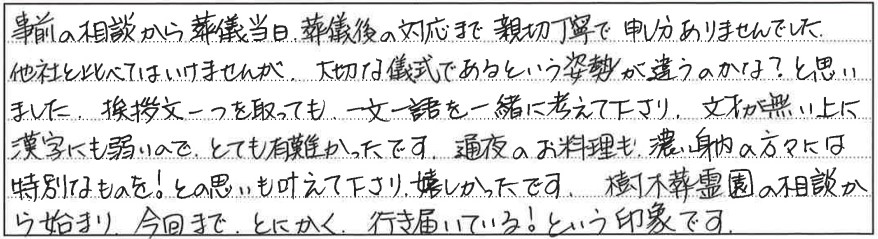 事前の相談から葬儀当日、葬儀後の対応まで親切丁寧で申し分ありませんでした。
他社と比べてはいけませんが、大切な儀式であるという姿勢が違うのかな?と思い
ました。挨拶文一つを取っても、一文一語を一緒に考えて下さり、文才が無い上に
漢字にも弱いので、とても有難かったです。通夜のお料理も、濃い身内の方々には
特別なものを!との思いも叶えて下さり、嬉しかったです。樹木葬霊園の相談か
ら始まり、今回まで、とにかく、行き届いている!という印象です。